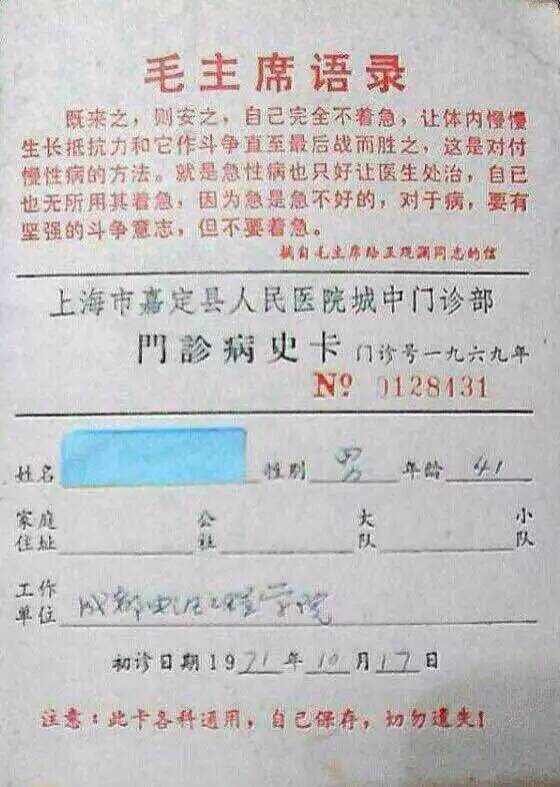 毛主席语录
既来之，则安之，自己完全不着急，让体内慢慢
生长抵抗力和它作斗争直至最后战而胜之，这是对付
慢性病的方法。就是急性病也只好让医生处治，自己
也无所用其着急，因为急是急不好的，对于病，要有
坚强的斗争意志，但不要着急。
摘自毛主席给王观澜同志的信
上海市嘉定县人民医院城中门诊部
門診病史卡 门诊号一九六九年
№ 0128431
姓名 性别 男 年龄 41
家庭住址 公社 大队 小队
工作单位 成都电讯工程学院
初诊日期1971年10月17日
注意：此卡各科通用，自己保存，切勿遗失！